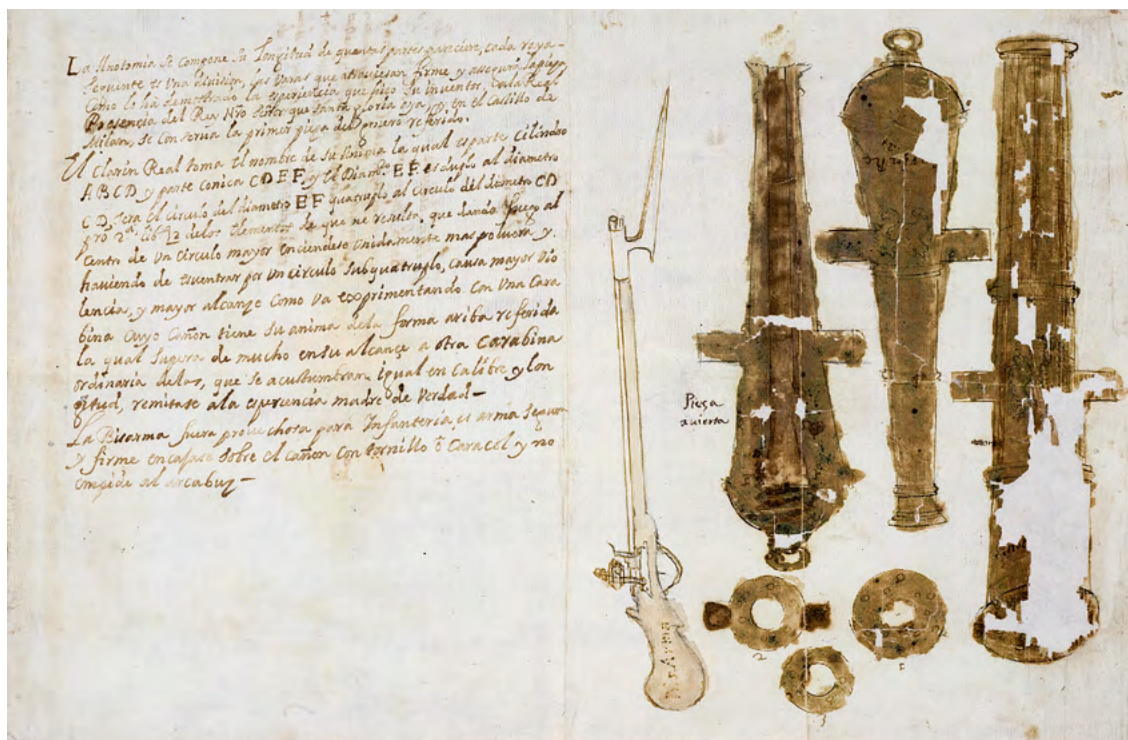 La Anotomia se compone su Longitud de quantas partes pareciere, cada raya
sequente es Una division, las Varas que atraviesan firme y assegura la pieza,
Como lo ha demostrado la experiencia que hizo su inventor,
Presencia del Rey Nro Señor que santa gloria aya, en el Castillo de
Milan, se conserua la primer pieza del genero referido.
El Clarin Real toma el nombre de su anima la qual es parte cilindro
A B C D y parte conica C D E F y el Diamo E F es duplo al diametro
C D, sera el circulo del diametro E F quatruplo al circulo del diametro C D
2a 12 de los Elementos de que se resulta, que dando fuego al
centro de Un circulo mayor enciendese Unidamente mas poluora y
hauiendo de salir por Un circulo Subquatruplo, causa mayor Vio
lencia, y mayor alcançe como Va experimentando con Una Cara
bina cuyo Cañon tiene su anima de la forma ariba referida
la qual supera de mucho en su alcançe a otra Carabina
ordinaria de las, que se acustumbran igual en Calibre y lon
gitud, remitase a la experiencia madre de Verdad—
La Bisarma fuera prouechosa para Infanteria, es arma segura
y firme encajase sobre el cañon con tornillo ō Caracol y no
empide al arcabuz—
Pieça
auierta
2
1
3